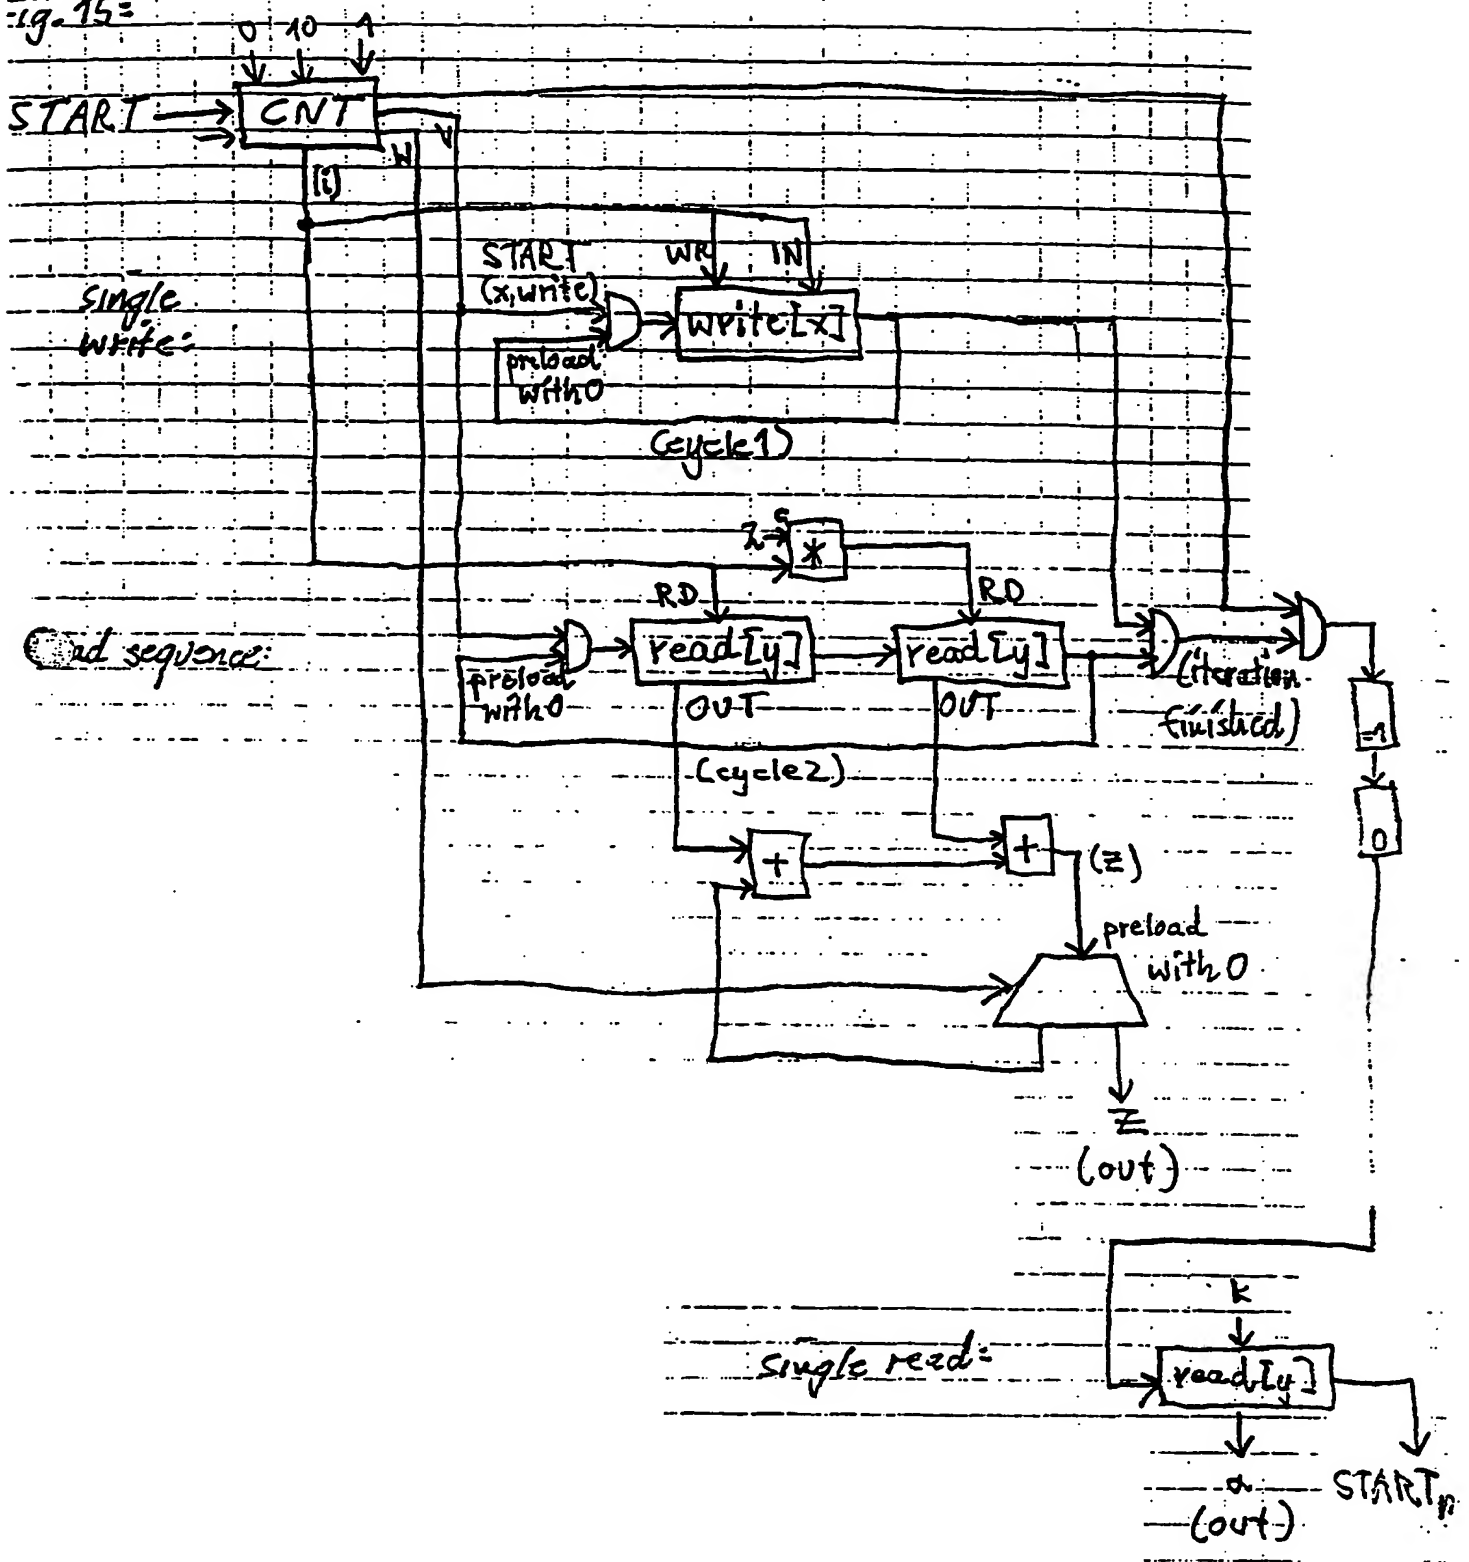 ig. 15:
0 10 1
START
CNT
V
W
(i)
START
(x,write)
WR
IN
write[x]
preload
with 0
(cycle1)
single
write:
*
RD
RD
ad sequence:
read[y]
read[y]
preload
with 0
OUT
OUT
(iteration
finished)
(cycle2)
=1
0
+
+
(z)
preload
with 0
z
(out)
k
single read:
read[y]
(out)